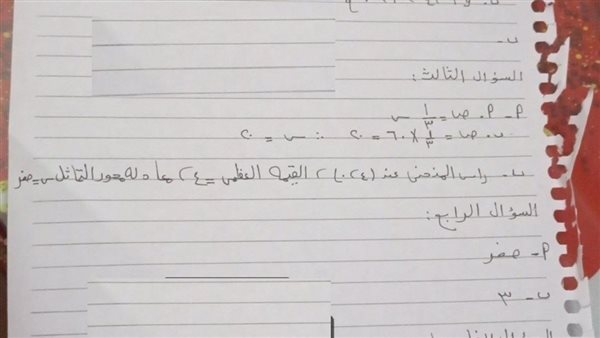 ب-
السؤال الثالث:
م- م. ص = ١/٣ س
ب. ص = ١/٣ × ٦٠ = ٢٠ ∴ س = ٢٠
ب- رأس المنحنى عند (٠،٤) ، القيمة العظمى = ٤، معادلة محور التماثل س = صفر
السؤال الرابع:
م- صفر
ب- ٣